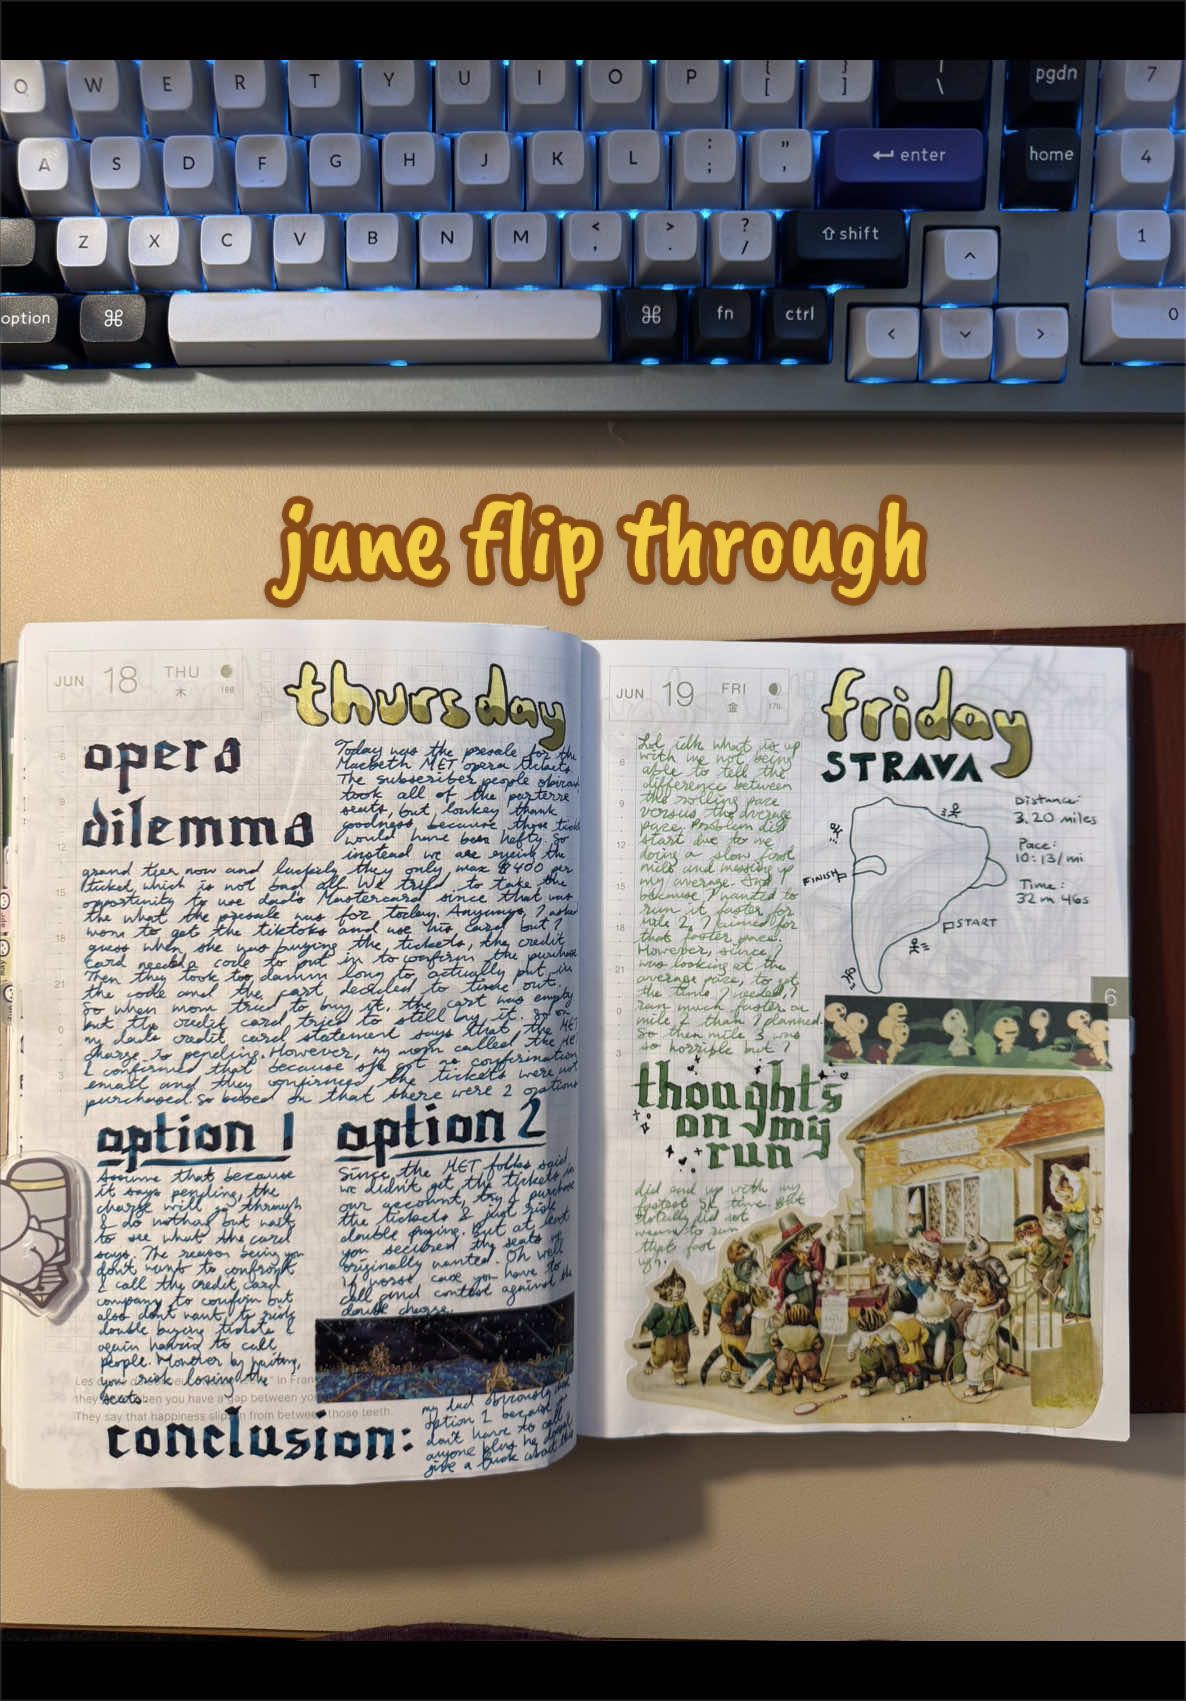 Q W E R T Y U I O P { [ } ] | \ pgdn 7
A S D F G H J K L : ; " ' enter home 4
Z X C V B N M < , > . ? / shift 1
option fn ctrl 0
june flip through
JUN 18 THU
木
thursday
opera
dilemma
Today was the presale for the
Macbeth MET opera tickets.
The subscriber people
took all of the parterre
seats, but, thank
goodness because those
would have been hefty. So
instead we are eyeing the
grand tier now and luckily they only max $400 per
ticket, which is not bad at all. We tried to take the
opportunity to use dad's Mastercard since that was
the what the presale was for today. Anyways, I asked
mom to get the and use his card but I
guess when she was buying the tickets, the credit
card needed a code to put in to confirm the purchase
Then they took too damn long to actually put in
the code and the cart decided to time out.
So when mom tried to buy it, the cart was empty
but the credit card tried to still buy it. So on
my dads credit card statement says that the MET
charge is pending. However, my mom called the MET
& confirmed that because she got no confirmation
email and they confirmed the tickets were not
purchased. So based on that there were 2 options
option 1
Assume that because
it says pending, the
charge will go through
& do nothing but wait
to see what the card
says. The reason being you
don't want to confront
& call the credit card
company to confirm but
also don't want to risk
double buying tickets &
again having to call
people. Moreover by waiting,
you risk losing the
seats.
option 2
Since the MET folks said
we didn't get the tickets in
our account, try & purchase
the tickets & just risk
double paying. But at least
you secured the seats
originally wanted. Oh well
if worst case you have to
call and contest against the
double charge.
Les in Fran
they when you have a gap between yo
They say that happiness slips in from between those teeth.
conclusion:
my dad obviously
option 2 because
don't have to call
anyone plus he doesn't
give a fuck about this
JUN 19 FRI
金
170
friday
Lol idk what is up
with me not being
able to tell the
difference between
the rolling pace
versus the average
pace. Problem did
start due to me
doing a slow first
mile and messing up
my average. And
because I wanted to
run it faster for
mile 2, I aimed for
that faster pace.
However, since I
was looking at the
average pace, to get
the time I needed, I
ran much faster on
mile 2 than I planned.
So then mile 3 was
so horrible but I
STRAVA
Distance:
3.20 miles
Pace:
10:13/mi
Time:
32m 46s
FINISH
START
6
thoughts
on my
run
did end up with my
fastest 5k time. But
totally did not
mean to run
that fast